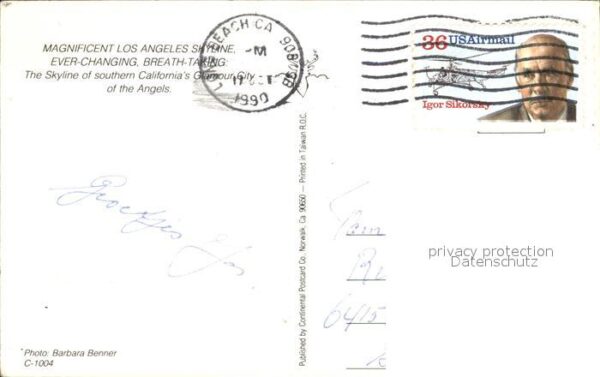 MAGNIFICENT LOS ANGELES SKYLINE,
EVER-CHANGING, BREATH-TAKING:
The Skyline of southern California's Glamour City
of the Angels.
BEACH CA
1990
36 USAirmail
Igor Sikorsky
Published by Continental Postcard Co., Norwalk, Ca 90650 — Printed in Taiwan R.O.C.
6415
privacy protection
Datenschutz
Photo: Barbara Benner
C-1004